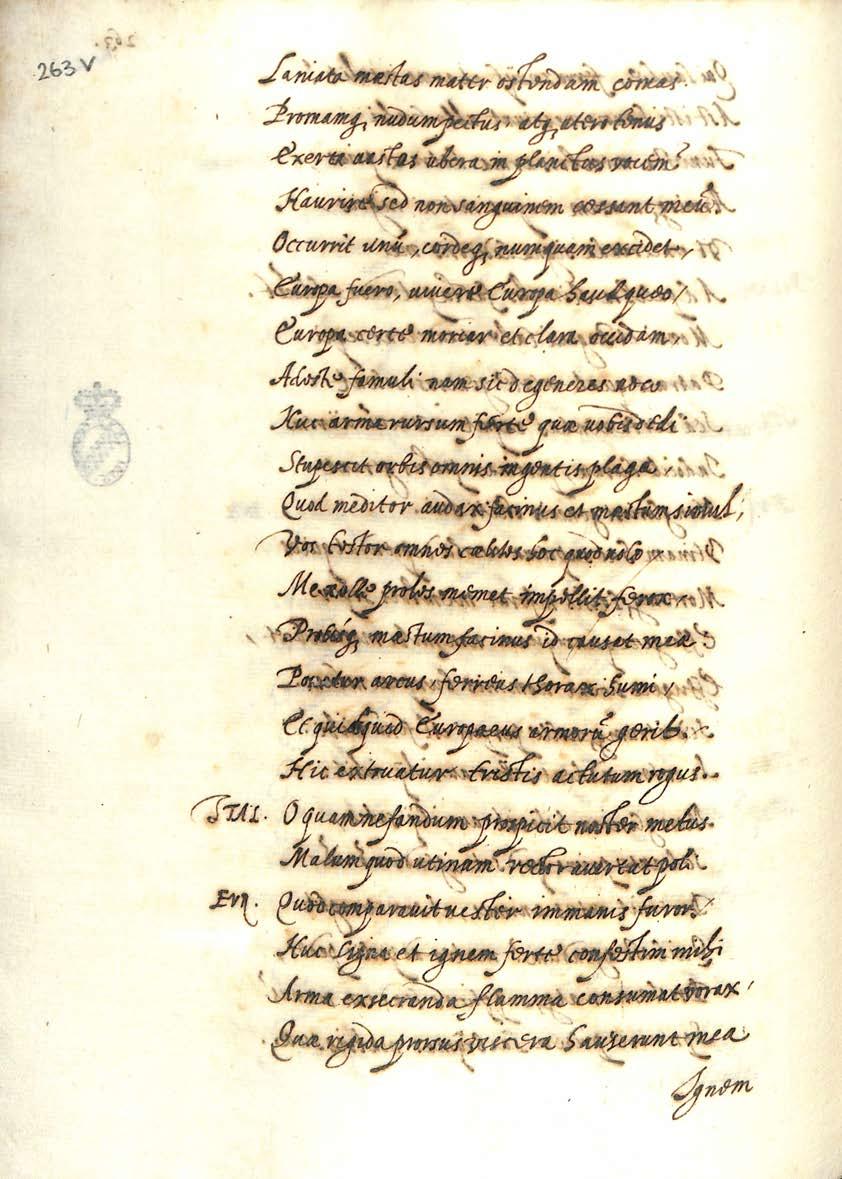 263 V
Laniata mæstas mater ostendam comas
Promamq; nudum pectus atq; utero tenus
Exerta vastas ubera in planctus vocem
Haurire sed non sanguinem cessant meũ
Occurrit unũ, cordeq; numquam excidet,
Europa fuero, vivere Europa haud queo,
Europa certe moriar et clara occidam,
Adeste famuli nam sic degeneres voco
Huc arma rursum ferte quæ vobis dedi
Stupescit orbis omnis ingentis plaga
Quod meditor audax facinus et mæstum simul,
Vos testor omnes cælites hoc quod nolo
Me proles memet impellit ferox
mæstum facinus id causat meæ
arcus, ferreus thorax humi,
Et quidquid Europaeus armorũ gerit.
Hic extruatur tristis actutum rogus.
ITAL. O quam nefandum prospicit noster metus
Malum quod utinam rector avertat poli
Eur. Quod comparavit vester immanis furor
Huc ligna et ignem ferte confestim mihi
Arma exsecranda flamma consumat vorax,
Quæ rigida prorsus viscera hauserunt mea
Ignem